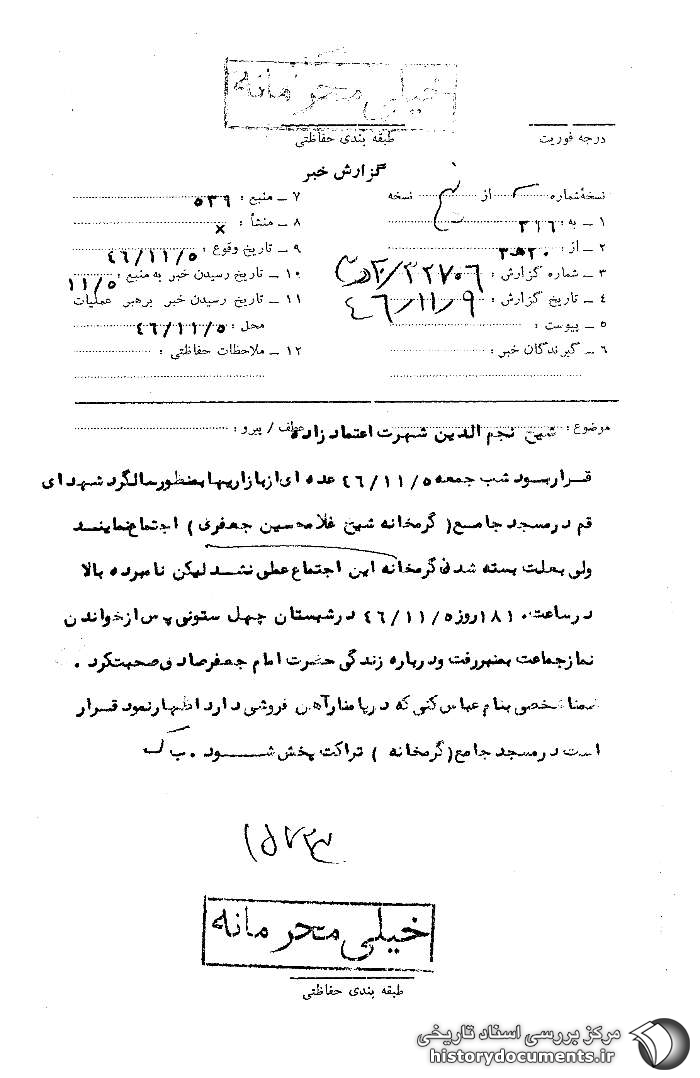 خیلی محرمانه
طبقه بندی حفاظتی
درجه فوریت
گزارش خبر
نسخهٔ شماره از نسخه
۱ ـ به : ۳۱۶
۲ ـ از : ۲۰ هـ ۳
۳ ـ شماره گزارش : ۲۲۷۰۶/۲۰
۴ ـ تاریخ گزارش : ۴۶/۱۱/۹
۵ ـ پیوست :
۶ ـ گیرندگان خبر :
۷ ـ منبع : ۵۳۹
۸ ـ منشأ : x
۹ ـ تاریخ وقوع : ۴۶/۱۱/۵
۱۰ ـ تاریخ رسیدن خبر به منبع : ۱۱/۵
۱۱ ـ تاریخ رسیدن خبر برهبر عملیات
محل : ۴۶/۱۱/۵
۱۲ ـ ملاحظات حفاظتی :
موضوع : شیخ نجم الدین شهرت اعتماد زاده عطف / پیرو :
قرار بود شب جمعه ۴۶/۱۱/۵ عده ای از بازاریها بمنظور سالگرد شهدای
قم در مسجد جامع ( گرمخانه شیخ غلامحسین جعفری ) اجتماع نمایند
ولی بعلت بسته شدن گرمخانه این اجتماع عملی نشد لیکن نامبرده بالا
در ساعت ۱۸۱۰ روز ۴۶/۱۱/۵ در شبستان چهل ستونی پس از خواندن
نماز جماعت بمنبر رفت و درباره زندگی حضرت امام جعفر صادق صحبت کرد .
ضمنا شخصی بنام عباس کنی که در پامنار آهن فروشی دارد اظهار نمود قرار
است در مسجد جامع ( گرمخانه ) تراکت پخش شود .
خیلی محرمانه
طبقه بندی حفاظتی
مرکز بررسی اسناد تاریخی
historydocuments.ir